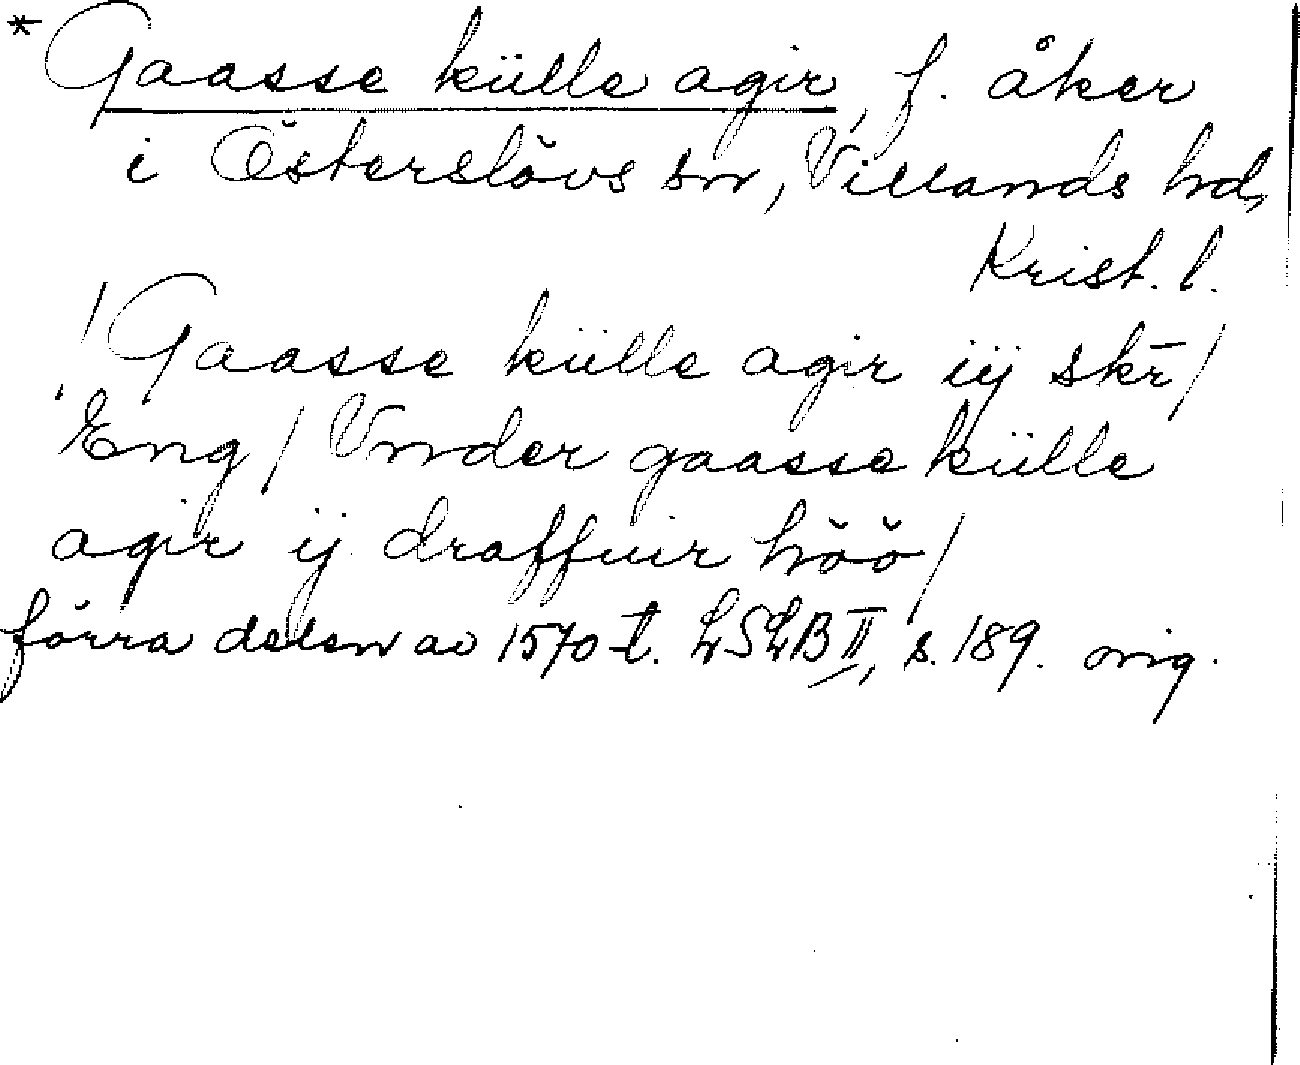 * Gaasse külle agir, f. åker
i Österslövs sn, Villands hd,
Krist. l.
/ Gaasse külle agir iij skr̄ /
Eng / Vnder gaasse külle
agir ij draffuir höö /
förra delen av 1570-t. LSLB II, s. 189. orig.